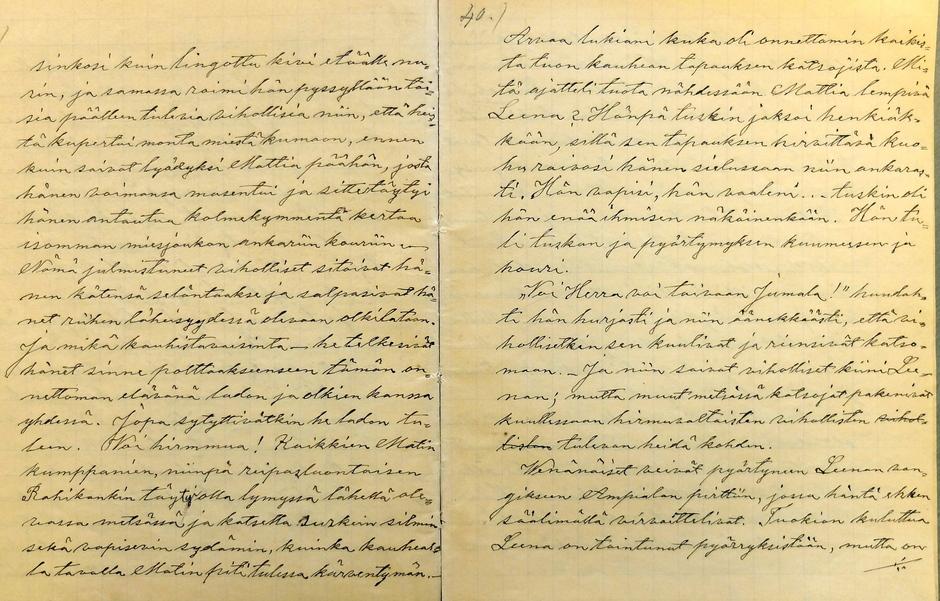 sinkosi kuin lingottu kivi etäälle nu-
rin, ja samassa roimi hän pyssyllään toi-
sia päälleen tulevia vihollisia niin, että hei-
tä kupertui monta miestä kumoon, ennen
kuin saivat lyödyksi Mattia päähän, josta
hänen voimansa masentui ja sitte täytyi
hänen antautua kolmekymmentä kertaa
isomman miesjoukon ankariin kouriin. —
Nämä julmistuneet viholliset sitoivat hä-
nen kätensä seläntaakse ja salpasivat hä-
net riihen läheisyydessä olevaan olkilatoon.
Ja mikä kauhistavaisinta — he telkesivät
hänet sinne polttaakseenseen tämän on
nettoman elävänä ladon ja olkien kanssa
yhdessä. Jopa sytyttivätkin he ladon tu-
leen. Voi hirmmua! Kaikkien Matin
kumppanien, niinpä reipasluontoisen
Rahikankin täytyi olla lymyssä lähellä ole-
vassa metsässä ja katsella surkein silmin
sekä vapisevin sydämin, kuinka kauheal-
la tavalla Matin piti tulessa kärventymän. —
40.)
Arvaa lukiani kuka oli onnettomin kaikis-
ta tuon kauhean tapauksen katsojista. Mi-
tä ajatteli tuota nähdessään Mattia lempivä
Leena? Hänpä tuskin jaksoi henkiäk-
kään, sillä sen tapauksen hirvittävä kuo-
hu raivosi hänen sielussaan niin ankaras-
ti. Hän vapisi, hän vaaleni... tuskin oli
hän enää ihmisen näköinenkään. Hän tu-
li tuskan ja pyörtymyksen kuumeesen ja
houri.
„Voi Herra voi taivaan Jumala!" huudah-
ti hän hurjasti ja niin äänekkäästi, että vi-
hollisetkin sen kuulivat ja riensivät katso-
maan. — Ja niin saivat viholliset kiini Lee-
nan; mutta muut metsässä katsojat pakenivat
kuullessaan hirmuvaltaisten vihollisten vihol-
listen tulevan heidä kohden.
Venänäiset veivät pyörtyneen Leenan van-
gikseen Ampialan perttiin, jossa häntä ehken
säälimättä virvoittelivat. Tuokion kuluttua
Leena on tointunut pyörryksistään, mutta on